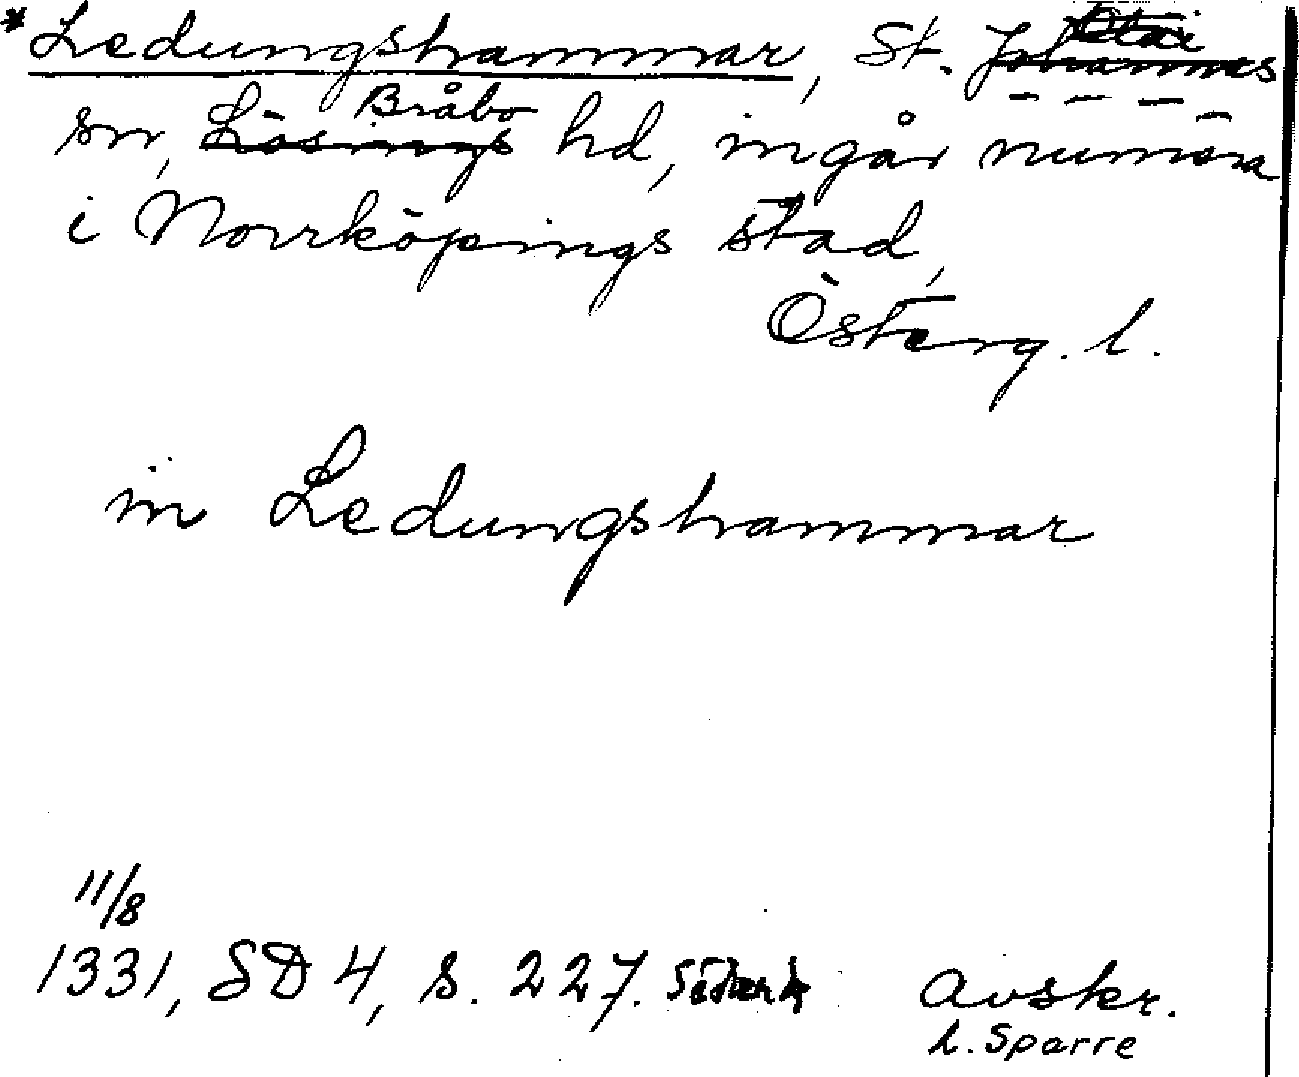 *Ledungshammar, St. Johannes
Bråbo
sn, Lösings hd, ingår numera
i Norrköpings stad,
Österg. l.
in Ledungshammar
11/8
1331, SD 4, s. 227. Avskr.
L. Sparre